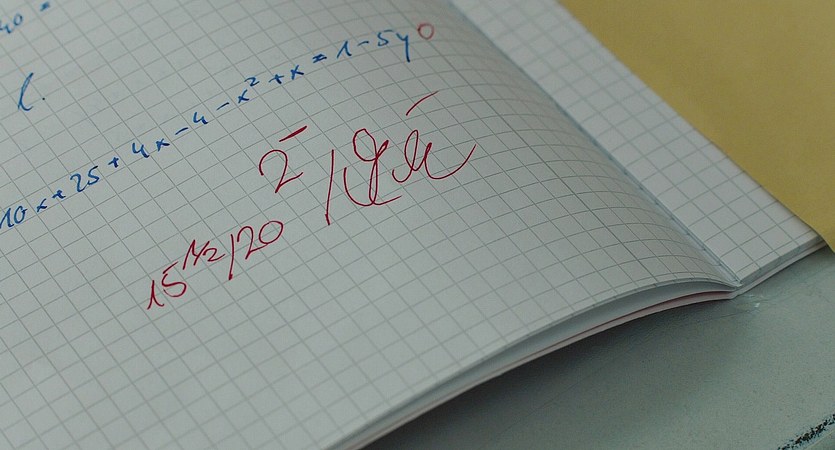 40 =
l.
10x + 25 + 4x - 4 - x² + x = 1 - 5y 0
2⁻ /
15 1/2 /20